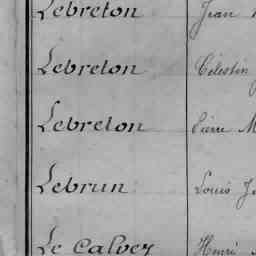 Lebreton Jean
Lebreton Célestin
Lebreton Pierre M
Lebrun Louis J
Le Calvez Henri